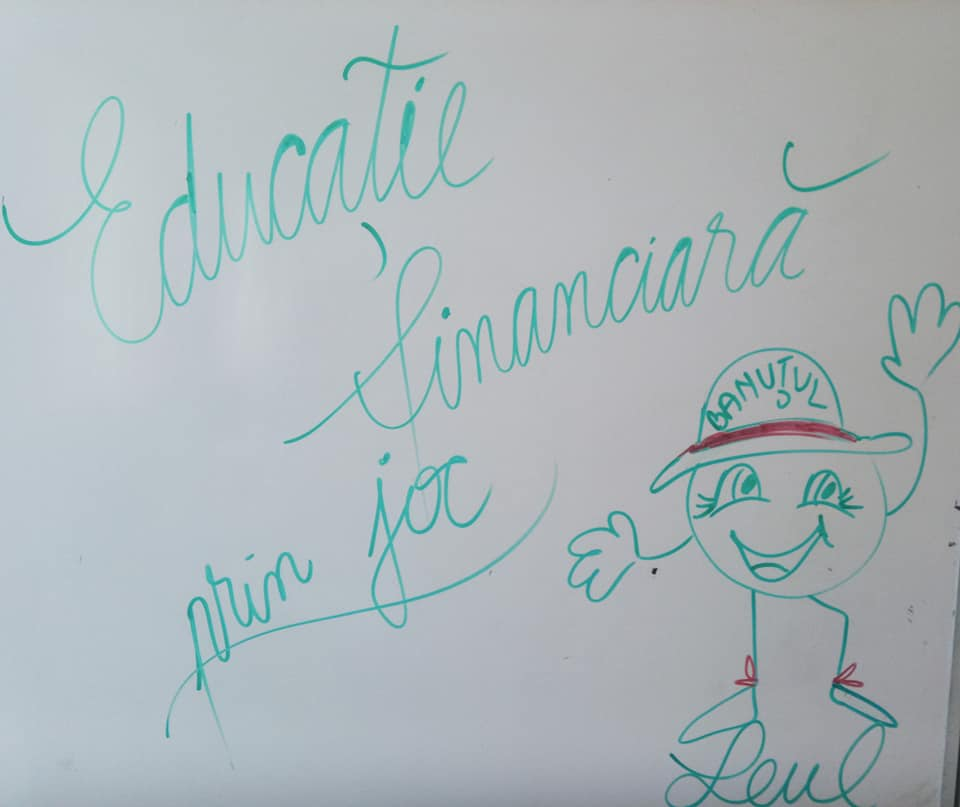 Educație
financiară
prin joc
BANUȚUL
Leul